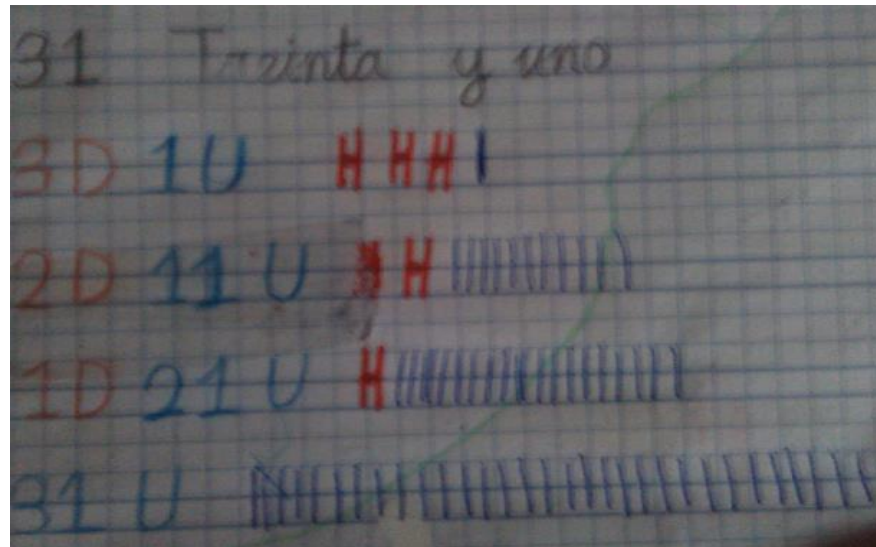 31 Treinta y uno
3D 1U
2D 11 U
1D 21 U
31 U